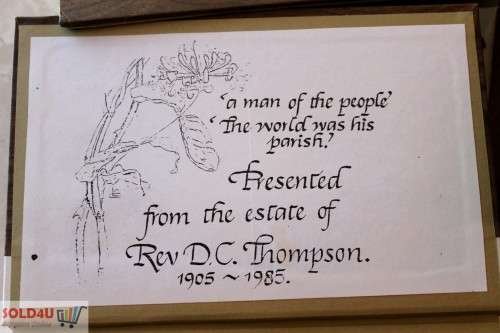 'a man of the people'
'The world was his
parish.'
Presented
from the estate of
Rev D.C. Thompson.
1905 ~ 1985.
SOLD4U